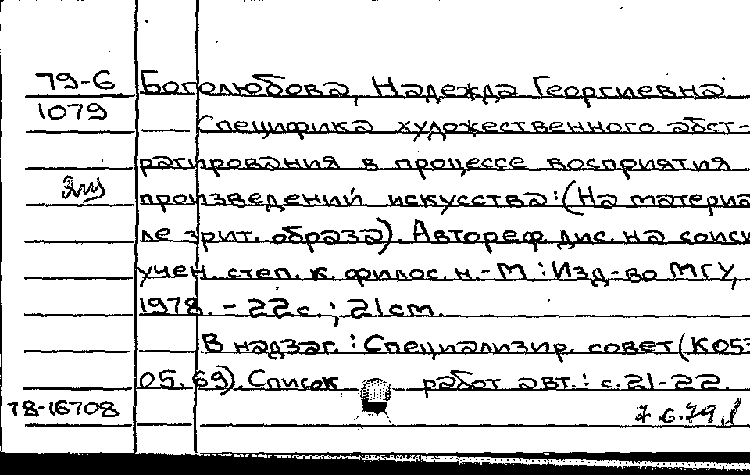 79-6 Боголюбова, Надежда Георгиевна
1079
Специфика художественного абст-
рагирования в процессе восприятия
произведений искусства: (На материа
ле зрит. образа). Автореф дис. на соиск
учен. степ. к. филос. н. - М: Изд-во МГУ,
1978. - 22 с.; 21 см.
В надзаг.: Специализир. совет (К053
05.69). Список работ авт.: с. 21-22.
78-16708 7.6.79.